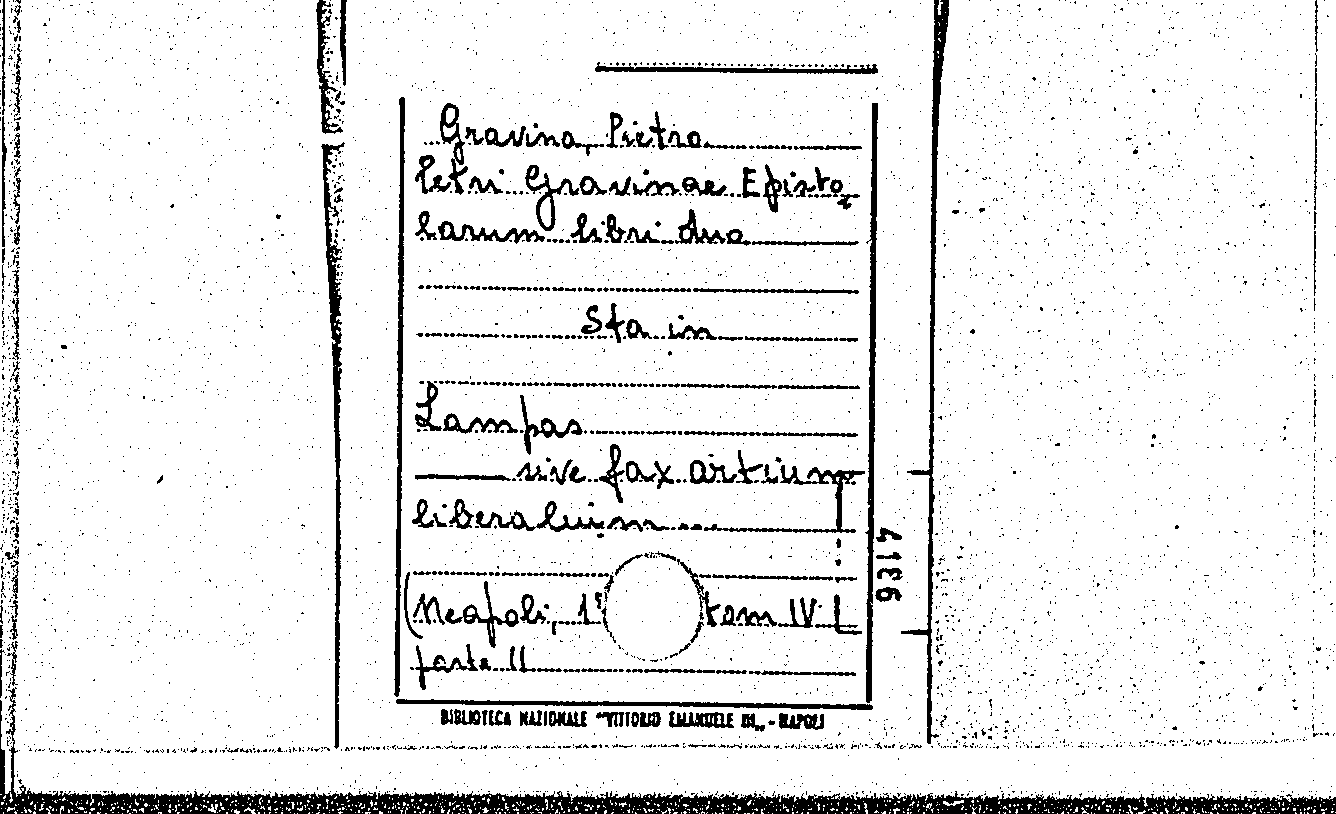 Gravina, Pietro
Petri Gravinae Episto
larum libri duo
Sta in
Lampas
sive fax artium
liberaluim ...
(Neapoli, 1 tom IV
parte II
BIBLIOTECA NAZIONALE "VITTORIO EMANUELE III„ - NAPOLI